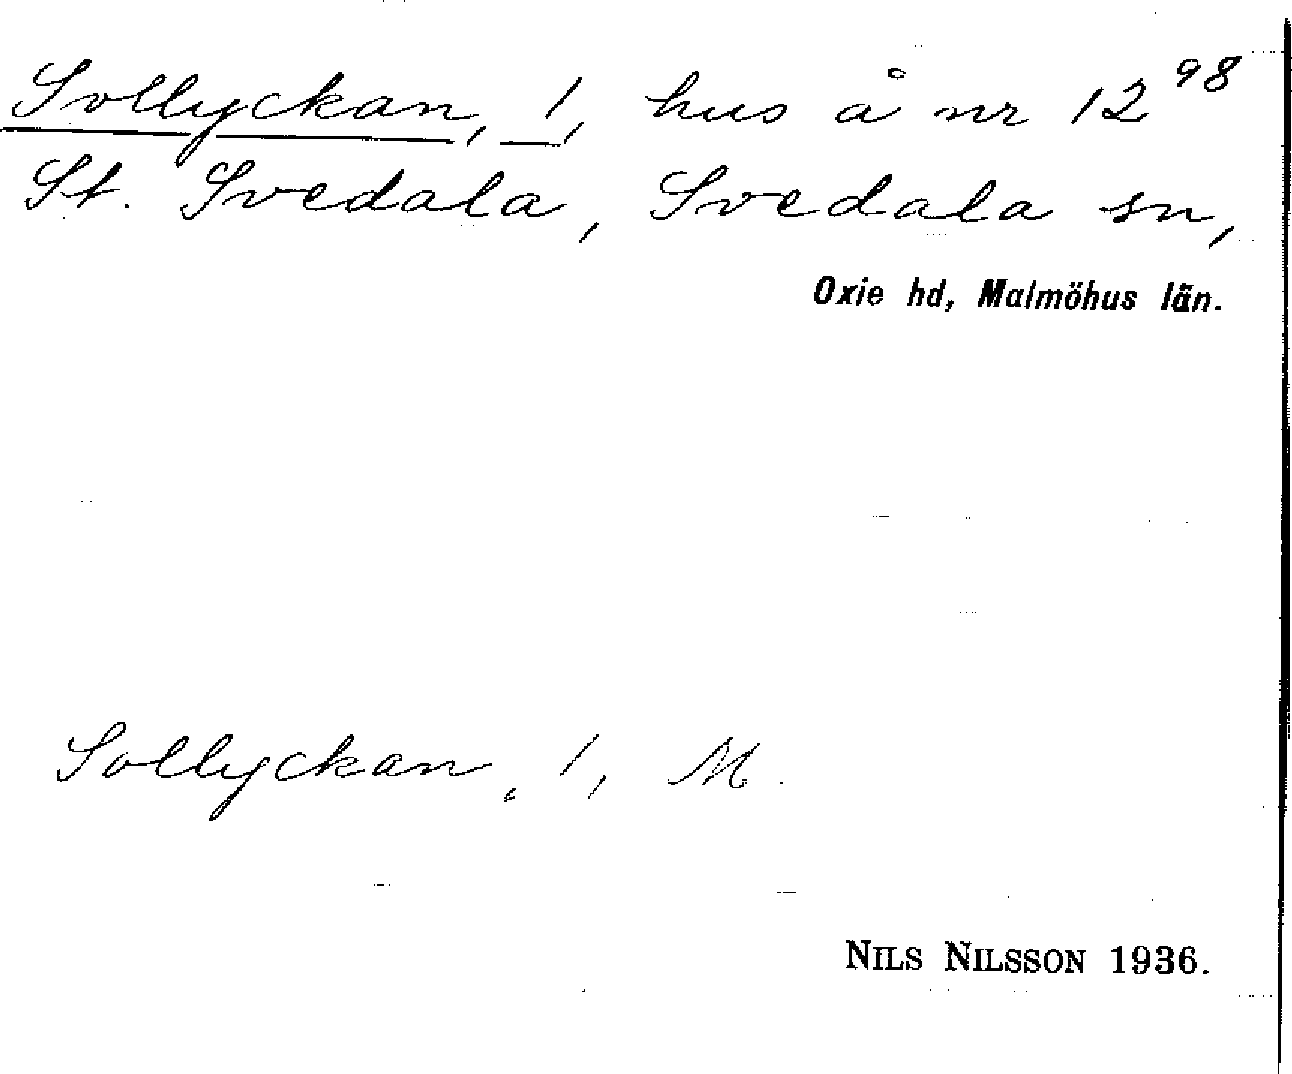 Sollyckan, 1, hus å nr 12⁹⁸
St. Svedala, Svedala sn,
Oxie hd, Malmöhus län.
Sollyckan, 1, M.
NILS NILSSON 1936.